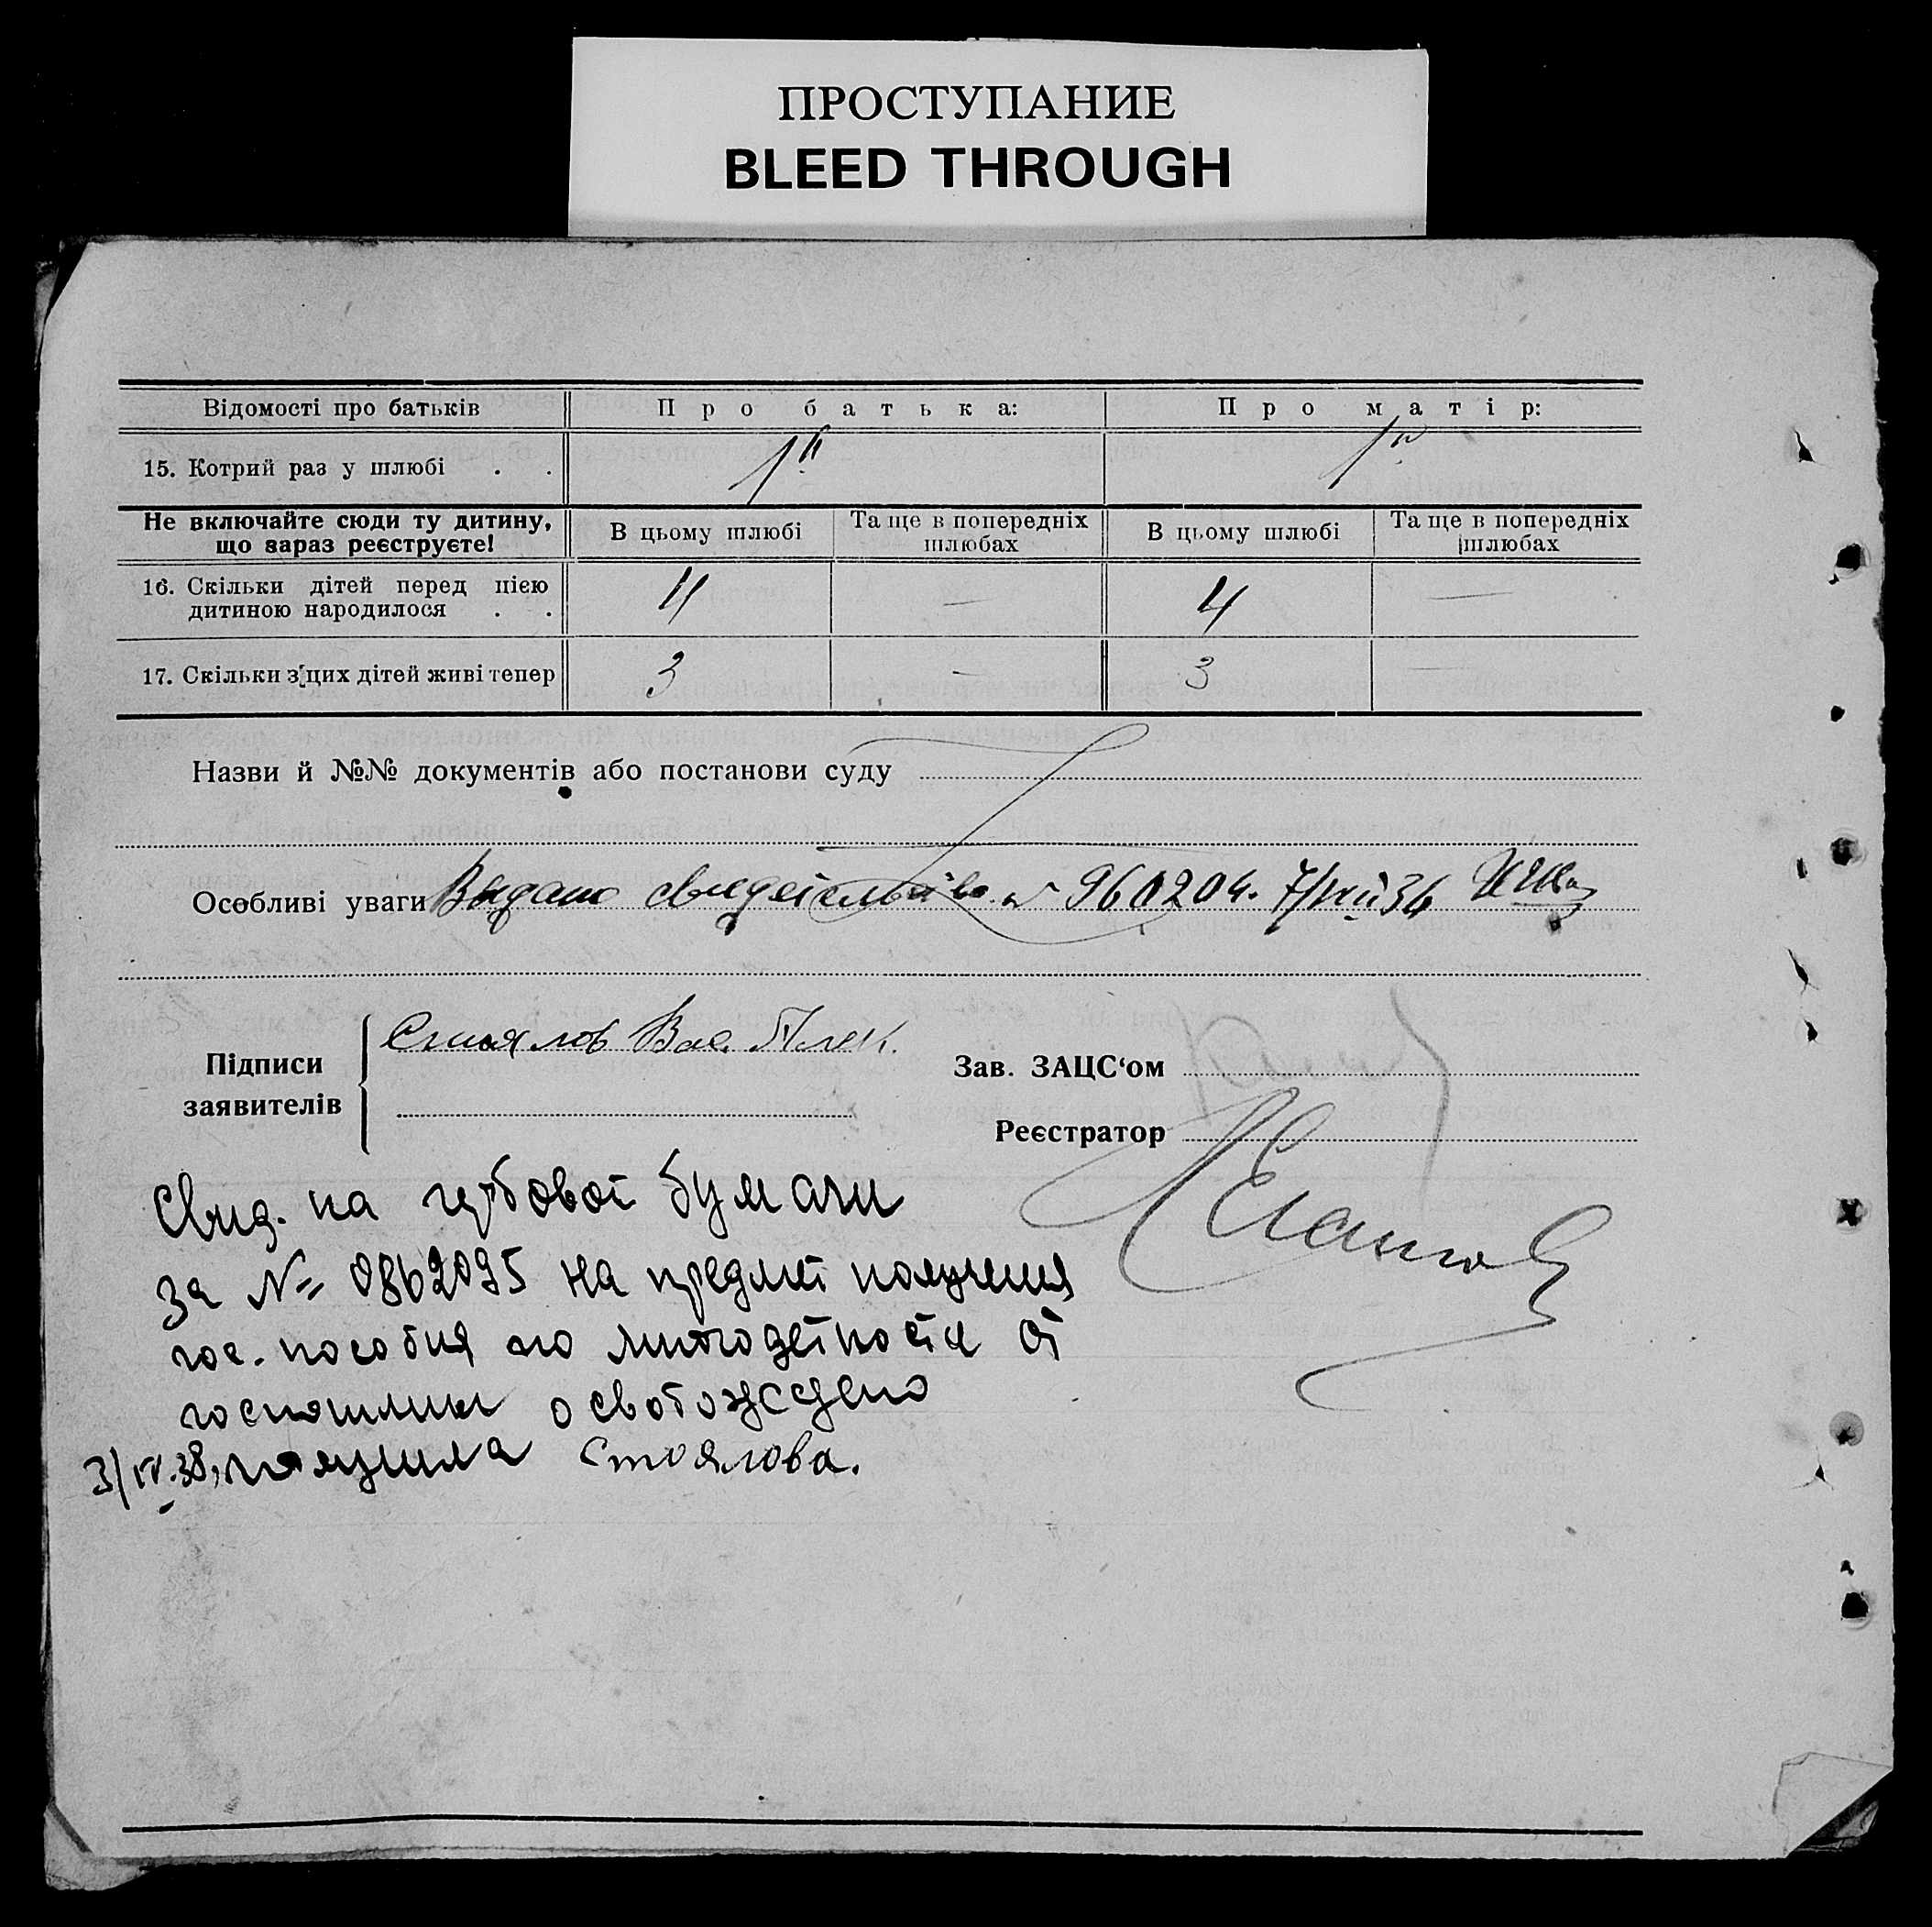 ПРОСТУПАНИЕ
BLEED THROUGH
Відомості про батьків Про батька: Про матір:
15. Котрий раз у шлюбі . . 1й 1й
Не включайте сюди ту дитину, що зараз реєструєте! В цьому шлюбі Та ще в попередніх шлюбах В цьому шлюбі Та ще в попередніх шлюбах
16. Скільки дітей перед цією дитиною народилося . . 4 — 4 —
17. Скільки з цих дітей живі тепер 3 — 3 —
Назви й №№ документів або постанови суду
Особливі уваги Выдано свидетельство №
Підписи заявителів Стоялов Вас. Алек.
Зав. ЗАЦС‘ом
Реєстратор
Свид. на гербовой бумаги
за № 0862095 на предмет получения
гос. пособия по многодетности от
госпошлины освобождено
3/IV.38, получила Стоялова.